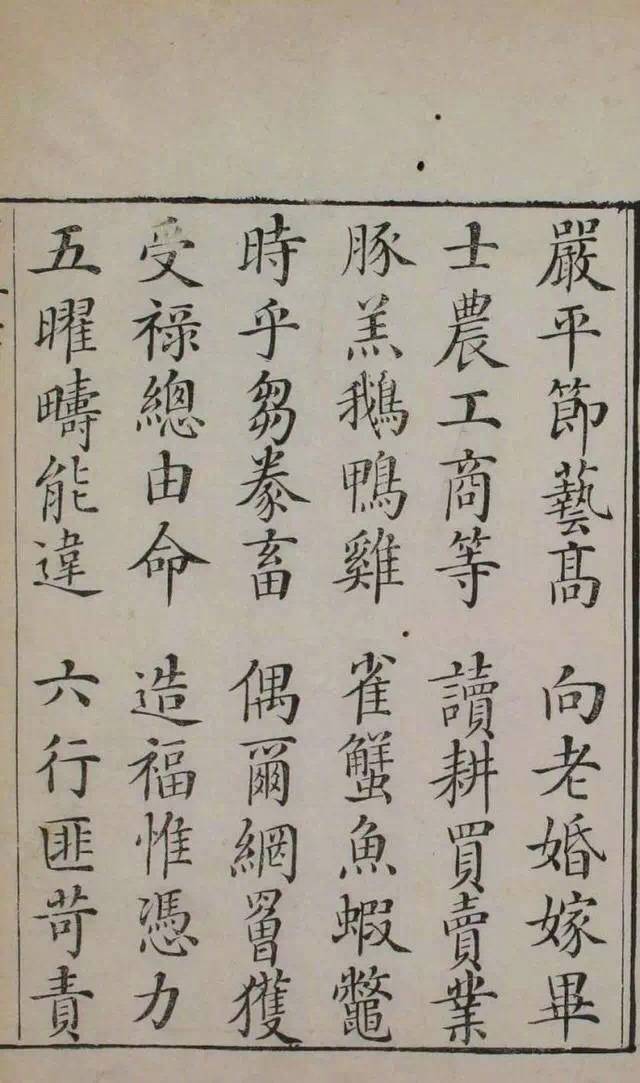 嚴平節藝高　向老婚嫁畢
士農工商等　讀耕買賣業
豚羔鵝鴨雞　雀蟹魚蝦鼈
時乎芻豢畜　偶爾網罾獲
受祿總由命　造福惟憑力
五曜疇能違　六行匪苛責